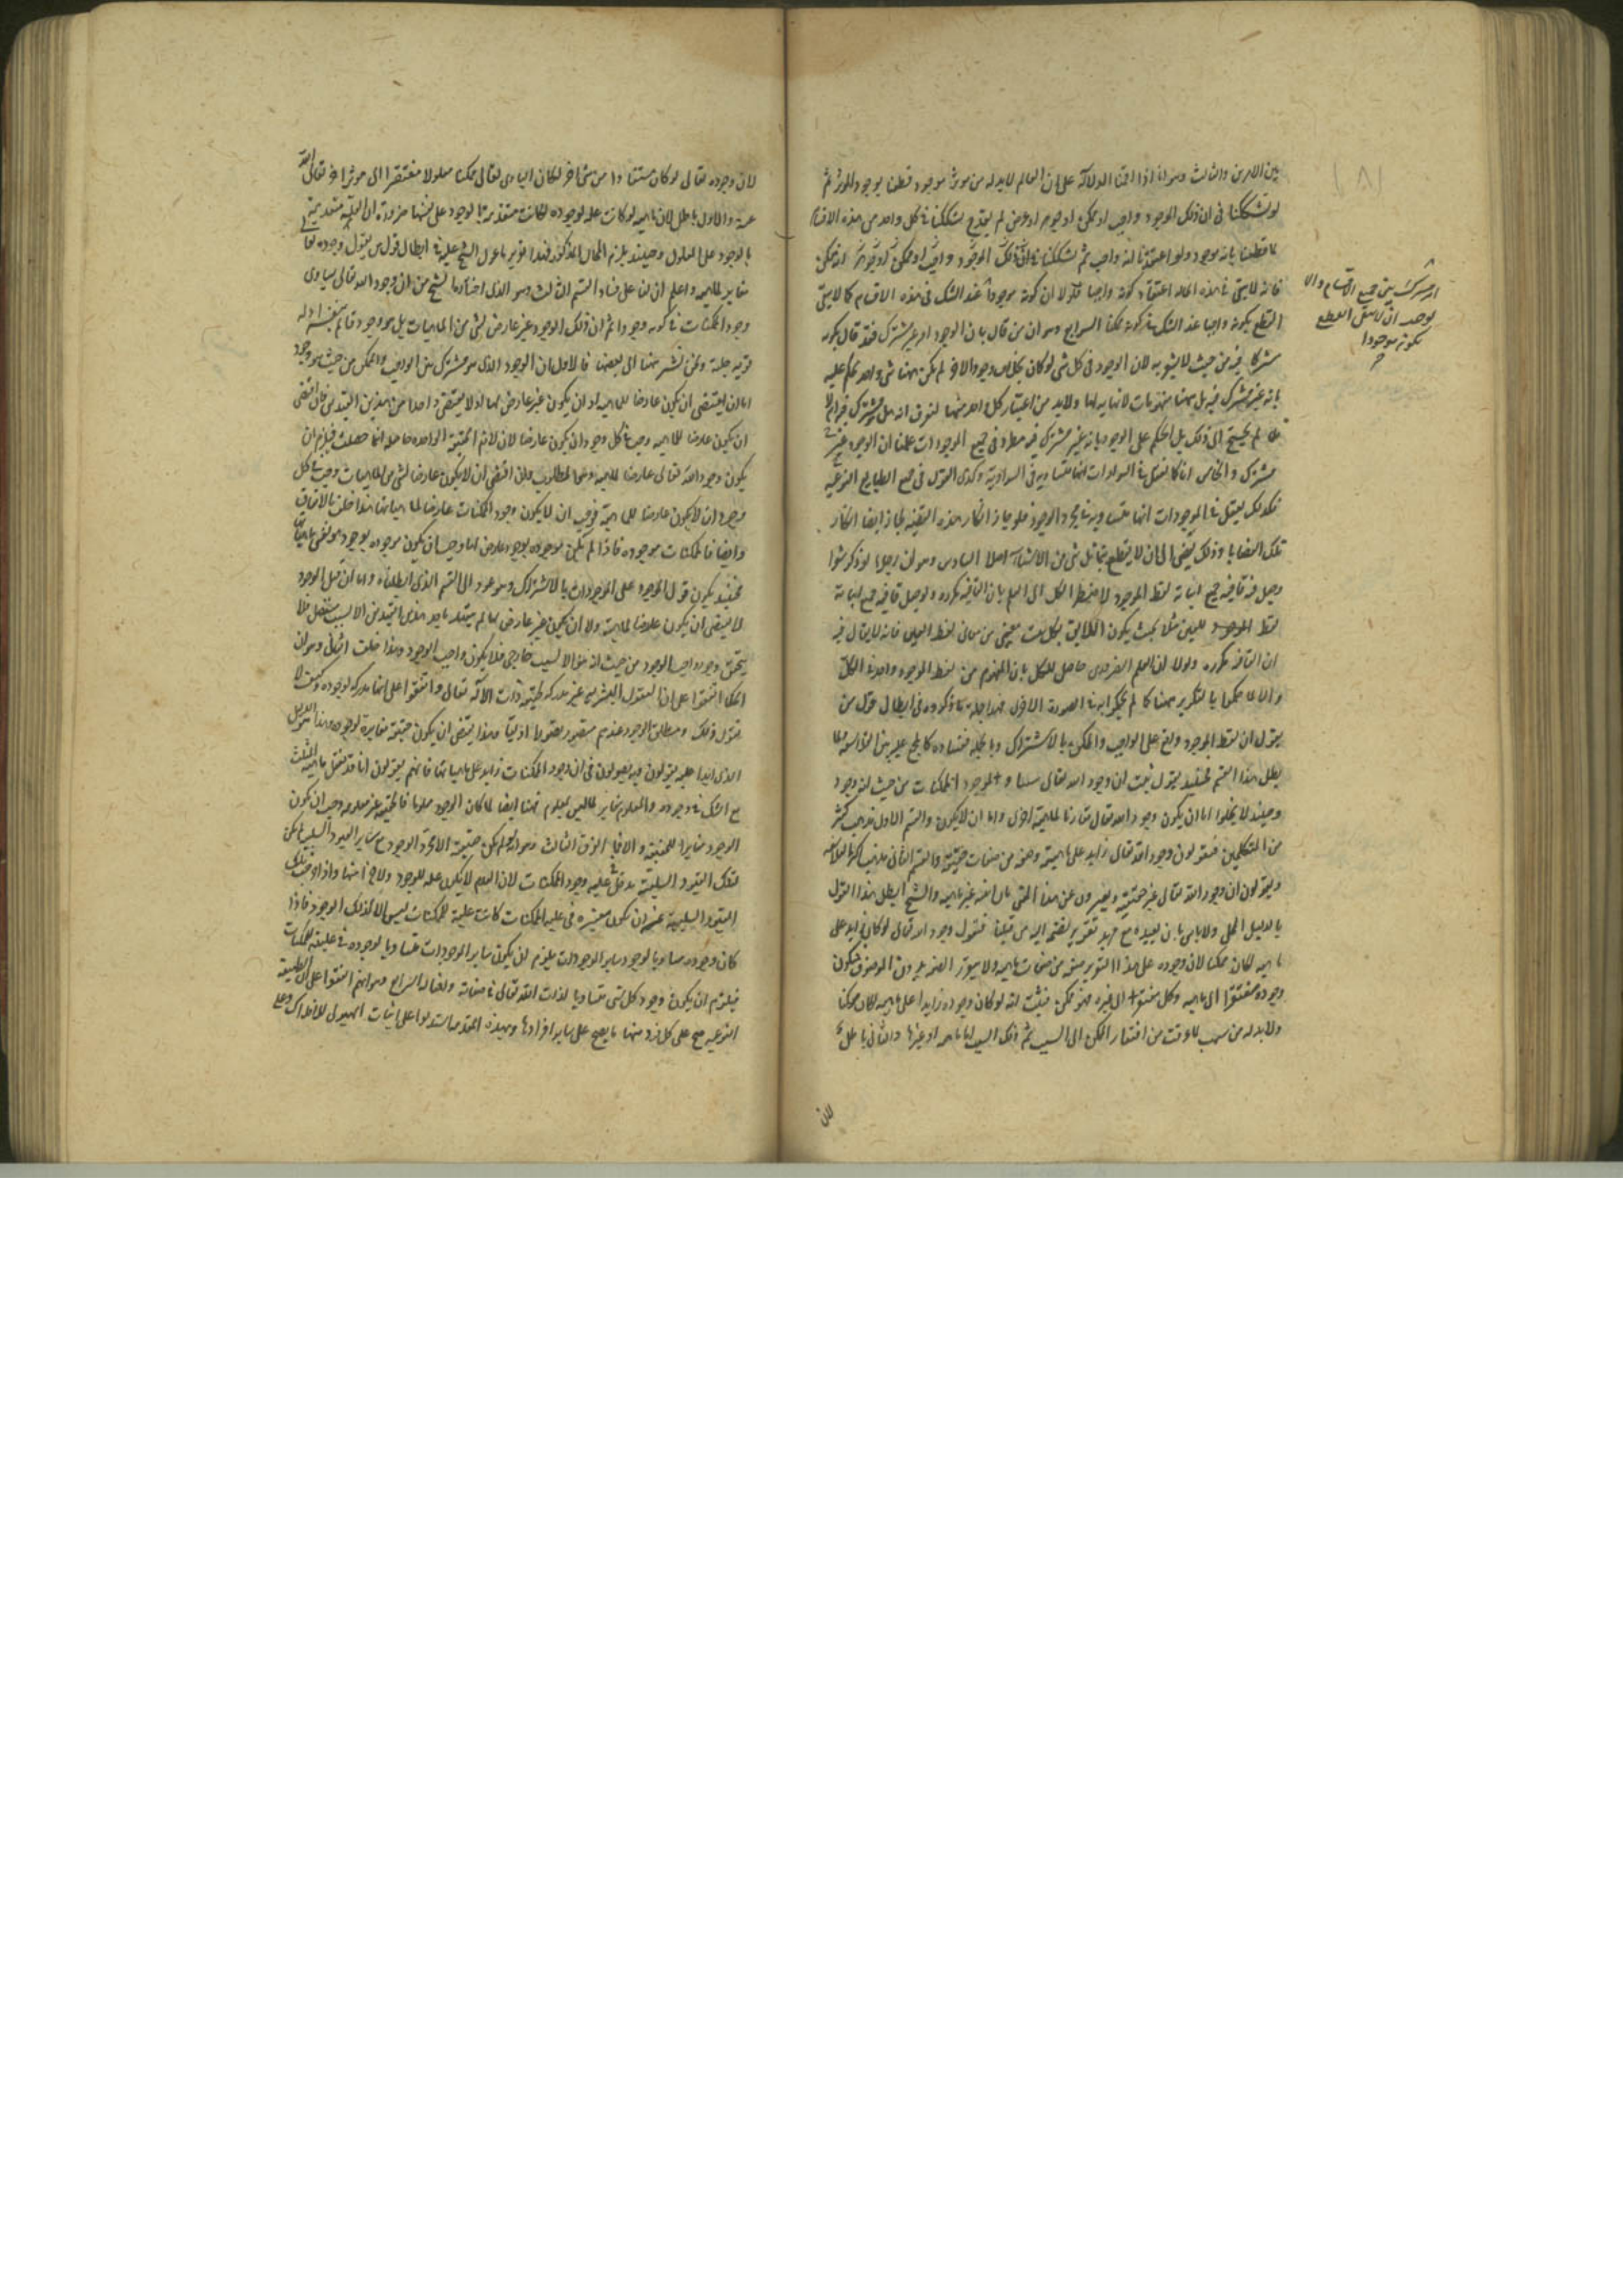 بين الامرين والثالث وهو انا اذا اقمنا الدلالة على ان العالم لابد له من موثر موجود قطعنا بوجود الموثر ثم
لو تشككنا فى ان ذلك الموجود واجب او ممكن او جوهر او عرض لم يقدح تشككنا فى كل واحد من هذه الاقسام
ما قطعنا بانه موجود ولو اعتقدنا انه واجب ثم تشككنا فى ان ذلك الموجود واجب او ممكن
فانه لا يبقى فى هذه الحالة اعتقاد كونه واجبا فلولا ان كونه موجودا عند الشك فى هذه الاقسام كما لا يبقى
القطع بكونه واجبا عند الشك فى كونه ممكنا الرابع وهو ان من قال بان الوجود امر غير مشترك فقد قال بكونه
مشتركا فيه من حيث لا يشعر به لان الوجود فى كل شى لو كان بخلاف وجود الاخر لم يكن ههنا شى واحد يحكم عليه
بانه غير مشترك فيه بل ههنا مفهومات لا نهاية لها ولابد من اعتبار كل واحد منها لنعرف انه هل هو مشترك فيه ام لا
لم يحتج الى ذلك بل الحكم على الوجود بانه غير مشترك فيه مطرد فى جميع الموجودات علمنا ان الوجود
مشترك والخامس انا كما نعقل فى السوادات انها متساوية فى السوادية وكذى القول فى جميع الطبايع النوعية
فكذلك يعقل فى الموجودات انها متساوية فى الوجود فلو جاز انكار هذه القضية لجاز ايضا انكار
تلك القضايا وذلك يفضى الى ان لا يقطع بتماثل شى من الاشياء اصلا السادس وهو ان رجلا لو ذكر شعرا
وجعل قافية جميع ابياته لفظ الموجود لاضطر الكل الى العلم بان القافية مكررة ولو جعل قافية جميع ابياته
لفظ العين مثلا بحيث يكون اللايق بكل بيت معنى من معانى لفظ العين فانه لا يقال فيه
ان القافية مكررة ولولا ان العلم الضرورى حاصل للكل بان المفهوم من لفظ الموجود واحد فى الكل
والا لما حكموا بالتكرير ههنا كما لم يحكموا به فى الصورة الاخرى فهذا جملة ما ذكروه فى ابطال قول من
يقول ان لفظ الموجود واقع على الواجب والممكن بالاشتراك وبالجملة
بطل هذا القسم فحينئذ نقول ثبت ان وجود الله تعالى مساو لوجود الممكنات من حيث انه وجود
وحينئذ لا يخلوا اما ان يكون وجود الله تعالى مقارنا لماهية اخرى واما ان لا يكون والقسم الاول مذهب كثير
من المتكلمين فيقولون وجود الله تعالى زايد على ماهيته وصفة من صفات حقيقته والقسم الثانى مذهب اكثر الفلاسفة
ويقولون ان وجود الله تعالى غير حقيقته ويعبرون عن هذا المعنى بان انيته عين ماهيته والشيخ ابطل هذا القول
بالدليل الجملى ولا باس بان نعيده مع مزيد تقرير نضمه اليه من قبلنا فنقول وجود الله تعالى لو كان زايدا على
ماهيته لكان ممكنا لان وجوده على هذا التقرير صفة من صفات ماهيته ولا يتصور الصفة بدون الموصوف فيكون
وجوده مفتقرا الى ماهيته وكل مفتقر الى غيره فهو ممكن فثبت انه لو كان وجوده زايدا على ماهيته لكان ممكنا
ولابد له من سبب لما عرفت من افتقار الممكن الى السبب ثم ذلك السبب اما ماهيته او غيرها والثانى باطل
لان
مشترك بين جميع الاقسام والا
لوجب ان لا يبقى القطع
بكونه موجودا
لان وجوده تعالى لو كان مستفادا من شى اخر لكان البارى تعالى ممكنا معلولا مفتقرا الى موثر اخر تعالى الله
عنه والاول باطل لان ماهيته لو كانت علة لوجوده لكانت متقدمة بالوجود على نفسها ضرورة ان العلة متقدمة
بالوجود على المعلول وحينئذ يلزم المحال المذكور فهذا تقرير ما عول الشيخ عليه فى ابطال قول من يقول وجوده
مغاير لماهيته واعلم ان لنا على فساد القسم الثالث وهو الذى اختاره الشيخ من ان وجود الله تعالى يساوى
وجود الممكنات فى كونه وجودا ثم ان ذلك الوجود غير عارض لشى من الماهيات بل هو وجود قايم بنفسه ادلة
قوية جلية ونحن نشير ههنا الى بعضها فالاول ان الوجود الذى هو مشترك بين الواجب والممكن من حيث هو وجود
اما ان يقتضى ان يكون عارضا للماهية او ان يكون غير عارض لها او لا يقتضى واحدا من هذين القيدين فان اقتضى
ان يكون عارضا للماهية وجب فى كل وجود ان يكون عارضا لان لازم الحقيقة الواحدة حاصل اينما حصلت فيلزم ان
يكون وجود الله تعالى عارضا لماهية وهو المطلوب وان اقتضى ان لا يكون عارضا لشى من الماهيات وجب فى كل
وجود ان لا يكون عارضا للماهية فوجب ان لا يكون وجود الممكنات عارضا لماهياتها هذا خلف بالاتفاق
وايضا فالممكنات موجودة فاذا لم تكن موجودة بوجود عارض لها وجب ان يكون موجودة بوجود هو نفس ماهياتها
فحينئذ يكون قول الموجود على الموجودات بالاشتراك وهو عود الى القسم الذى ابطلناه واما ان قيل الوجود
لا يقتضى ان يكون عارضا لماهية ولا ان يكون غير عارض لها لم يتقيد باحد هذين القيدين الا لسبب منفصل فلا
يتحقق وجود واجب الوجود من حيث انه هو الا لسبب خارجى فلا يكون واجب الوجود وهذا خلف الثانى وهو ان
الحكما اتفقوا على ان العقول البشرية غير مدركة لحقيقة ذات الاله تعالى واتفقوا على انها مدركة لوجوده وكيف لا
نقول ذلك ومطلق الوجود عندهم متصور تصورا اوليا وهذا يقتضى ان يكون حقيقته مغايرة لوجوده وهذا الدليل هو
الذى ابدا عليه يقولون وبه يصولون فى ان وجود الممكنات زايد على ماهياتها فانهم يقولون انا قد نعقل ماهية المثلث
مع الشك فى وجوده والمعلوم مغاير لما ليس بمعلوم فههنا ايضا لما كان الوجود معلوما فالحقيقة غير معلومة وجب ان يكون
الوجود مغايرا للحقيقة والا فما الفرق الثالث وهو انه لو لم يكن حقيقته الا مجرد الوجود مع ساير القيود السلبية لم يكن
لتلك القيود السلبية مدخل فى علية وجود الممكنات لان العدم لا يكون علة للوجود ولا جزءا منها واذا وجب فى تلك
القيود السلبية عن ان تكون معتبرة فى علية الممكنات كانت علية الممكنات ليس الا لذلك الوجود فاذا
كان وجوده مساويا لوجود ساير الموجودات يلزم ان يكون ساير الوجودات مساويا لوجوده فى علية الممكنات
فيلزم ان يكون وجود كل شى مساويا لذات الله تعالى فى صفاته وافعاله الرابع وهو انهم اتفقوا على ان الطبيعة
النوعية صح على كل فرد منها ما يصح على ساير افرادها وبهذه المقدمة استدلوا على اثبات الهيولى للافلاك